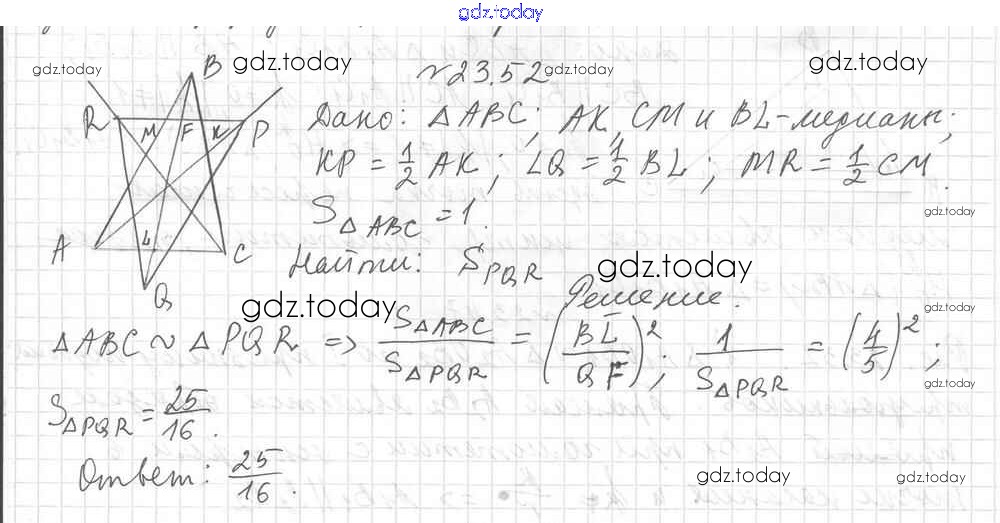 gdz.today
№23.52
gdz.today gdz.today gdz.today gdz.today
B
R M F K P
A L C
Q
Дано: △ABC; AK, CM и BL-медианы;
KP = 1/2 AK; LQ = 1/2 BL; MR = 1/2 CM.
gdz.today
S△ABC = 1.
Найти: SPQR
gdz.today
gdz.today
Решение.
gdz.today
△ABC ~ △PQR => S△ABC/S△PQR = (BL/QF)²; 1/S△PQR = (4/5)²;
gdz.today
S△PQR = 25/16.
Ответ: 25/16.
gdz.today gdz.today